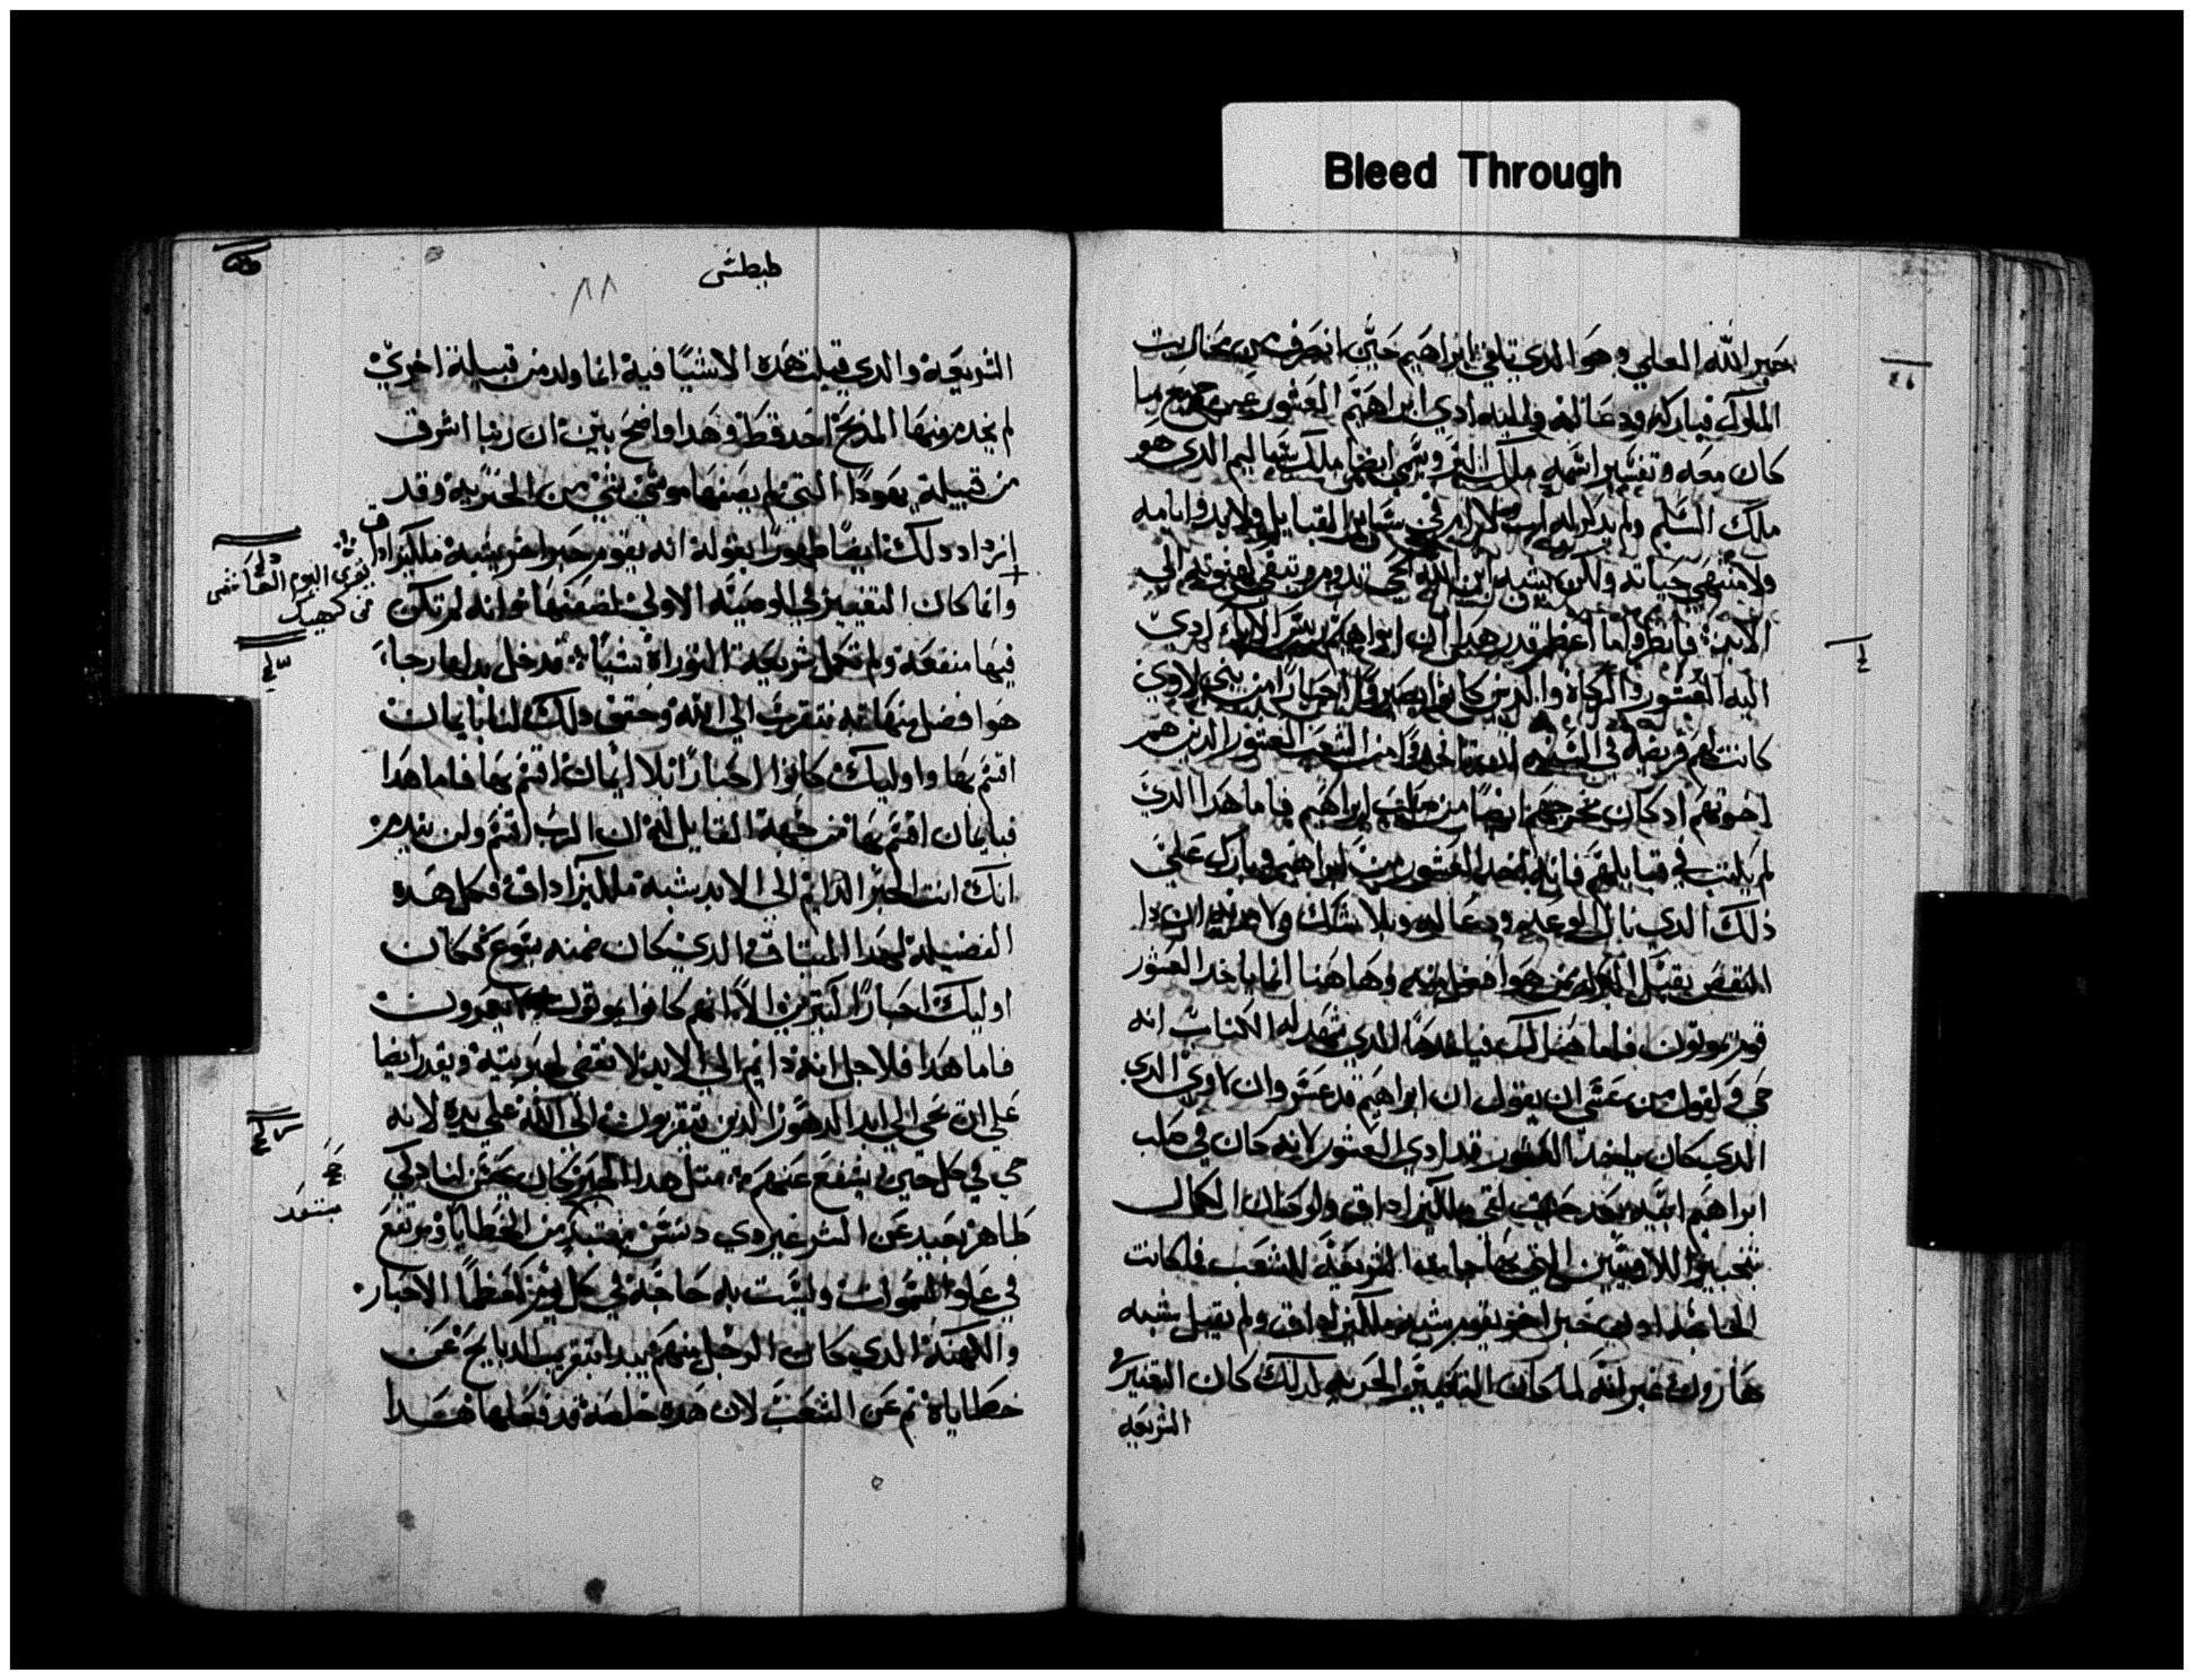 Bleed Through
حبر الله العلي وهو الذي تلقي ابراهيم حين انصرف من محاربت
الملوك فباركه ودعا له واليه ادي ابراهيم العشور من جميع ما
كان معه وتفسير اسمه ملك البر ويسمي ايضا ملك شاليم الذي هو
ملك السلم ولم يذكر له اب ولا ام في ساير القبايل ولا بدو ايامه
ولا منتهي حياته ولكن بشبه ابن الله الحي تدوم وتبقي كهنوته الي
الابد فانظروا ما اعظم قدر هذا ان ابراهيم ريس الابا ادي
اليه العشور والزكاة والذين كانوا يصيرون احبارا من بني لاوي
كانت لهم فريضة في السنه ان ياخدوا من الشعب العشور الذين هم
اخوتهم اد كان مخرجهم ايضا من صلب ابراهيم فاما هدا الدي
لم يكتب في قبايلهم فانه اخد العشور من ابراهيم وبارك علي
ذلك الذي نال الوعد ودعا له وبلا شك ولا مريه ان دا
النقص يقبل البركه ممن هو افضل منه وها هنا انما ياخد العشور
قوم يموتون فاما هنالك فياخدها الذي شهد له الكتاب انه
حي وليقول من عسي ان يقول ان ابراهيم قد عشر وان لاوي الدي
الدي كان ياخد العشور قد ادي العشور لانه كان في صلب
ابراهيم ابيه بعد حيث لقي ملكيزاداق ولو كان الكمال
بتحبير اللاويين التي بها جا بعد الشريعة للشعب فما كانت
الحاجه ادن حبر اخر يقوم بشبه ملكيزاداق ولم يقيل شبه
هارون غير انه لما كان التغيير الحبريه كدلك كان التغيير في
الشريعه
طيطس
٨٨
الشريعة والدي قيلت هده الاشيا فيه انما ولد من قبيلة اخري
لم يخدم منها المدبح احد قط وهدا واضح بين ان ربنا اشرق
من قبيلة يهودا التي لم يصفها موسي بشي من الحبرية وقد
ازداد دلك ايضا ظهورا بقوله انه يقوم حبرا اخر يشبه ملكيزاداق
يقري اليوم
من كيهك
وانما كان التغيير في الوصية الاولي لضعفها وانه لم تكن
فيها منفعة ولم تكمل شريعة التوراة شيا قد دخل بدلها رجا
هو افضل منها به نتقرب الي الله وحقق دلك لنا بايمان
اقسم بها واوليك كانوا احبارا بلا ايمان اقسم بها فاما هدا
فبايمان اقسم بها من جهة القايل له ان الرب اقسم ولن يندم
انك انت الحبر الدايم الي الابد بشبه ملكيزاداق فكل هده
الفضيلة لهدا الميتاق الدي كان ضمنه يسوع فكان
اوليك احبارا كتيرين لانهم كانوا يموتون ولا يعمرون
فاما هدا فلاجل انه دايم الي الابد لا تقضي حبريته ويقدر ايضا
علي ان يحي الي ابد الدهور الدين يتقربون الي الله علي يده لانه
حي في كل حين يشفع عنهم متل هدا الحبر كان يحسن لنا دكي
طاهر بعيد عن الشر غير دي دنس مبتعد من الخطايا ومرتفع
في علو السموات وليست به حاجة في كل يوم كعظما الاحبار
والكهنة الدي كان الرجل منهم يبدا بتقريب الدبايح عن
خطاياه تم عن الشعب لان هده خلصة قد فعلها هدا